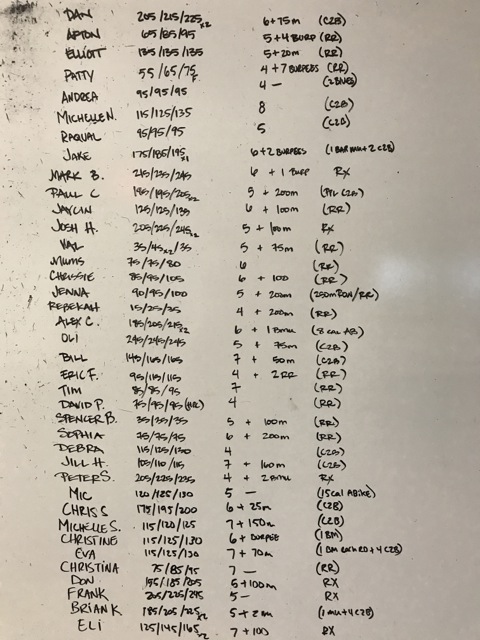 DAN 205/215/225x2 6+75m (C2B)
AFTON 65/85/95 5+4 BURP (RR)
ELLIOTT 135/135/135 5+20m (RR)
PATTY 55/65/75F 4+7 BURPEES (RR)
ANDREA 95/95/95 4 —
MICHELLE N. 115/125/135 8 (C2B)
RAQUAL 95/95/95 5 (C2B)
JAKE 175/185/195x1 6+2 BURPEES (1 BAR MU+2 C2B)
MARK B. 215/235/245 6 + 1 BURP RX
PAUL C 185/195/205x2 5 + 200m
JAYCIN 125/125/135 6 + 100m (RR)
JOSH H. 205/225/245x2 5 + 100m RX
VAL 35/45x2/35 5 + 75m (RR)
MUMS 75/75/80 6 (RR)
CHRISSIE 85/95/105 6 + 100 (RR)
JENNA 90/95/100 5 + 200m (250m ROW/RR)
REBEKAH 15/25/25 4 + 200m (RR)
ALEX C. 185/205/215x2 6 + 1 BMU (8 CAL AB)
OLI 245/245/245 5 + 75m (C2B)
BILL 145/165/165 7 + 50m (C2B)
ERIC F. 95/115/115 4 + 2RR (RR)
TIM 85/85/95 7 (RR)
DAVID P. 75/95/95 4 (RR)
SPENCER B. 35/35/35 5 + 100m (RR)
SOPHIA 75/75/75 6 + 200m (RR)
DEBRA 115/125/130 4 (C2B)
JILL H. 105/110/115 7 + 160m (C2B)
PETER S. 205/225/235 4 + 2 BMU RX
MIC 120/125/130 5 — (15 CAL ABIKE)
CHRIS S 175/195/200 6 + 25m (C2B)
MICHELLE S. 115/120/125 7 + 150m (C2B)
CHRISTINE 115/125/130 6 + BURPEE (1 BM)
EVA 115/125/130 7 + 70m (1 BM EACH RD + 4 C2B)
CHRISTINA 75/85/95 7 — (RR)
DON 155/185/205 5+100m RX
FRANK 205/225/245 5 — RX
BRIAN K 185/205/225x2 5+2m (1 MU+4 C2B)
ELI 125/145/165x2 7 + 100 RX